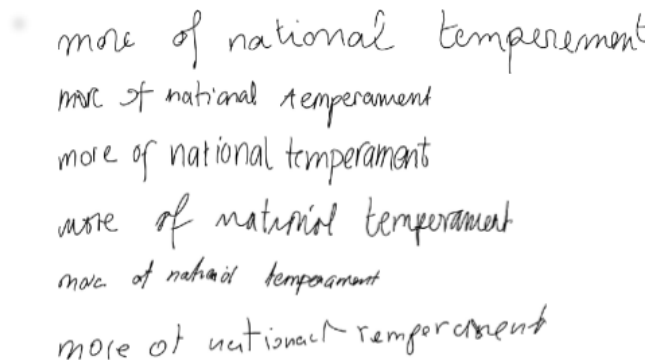 more of national temperement
more of national temperament
more of national temperament
more of national temperament
more of national temperament
more of national temperament